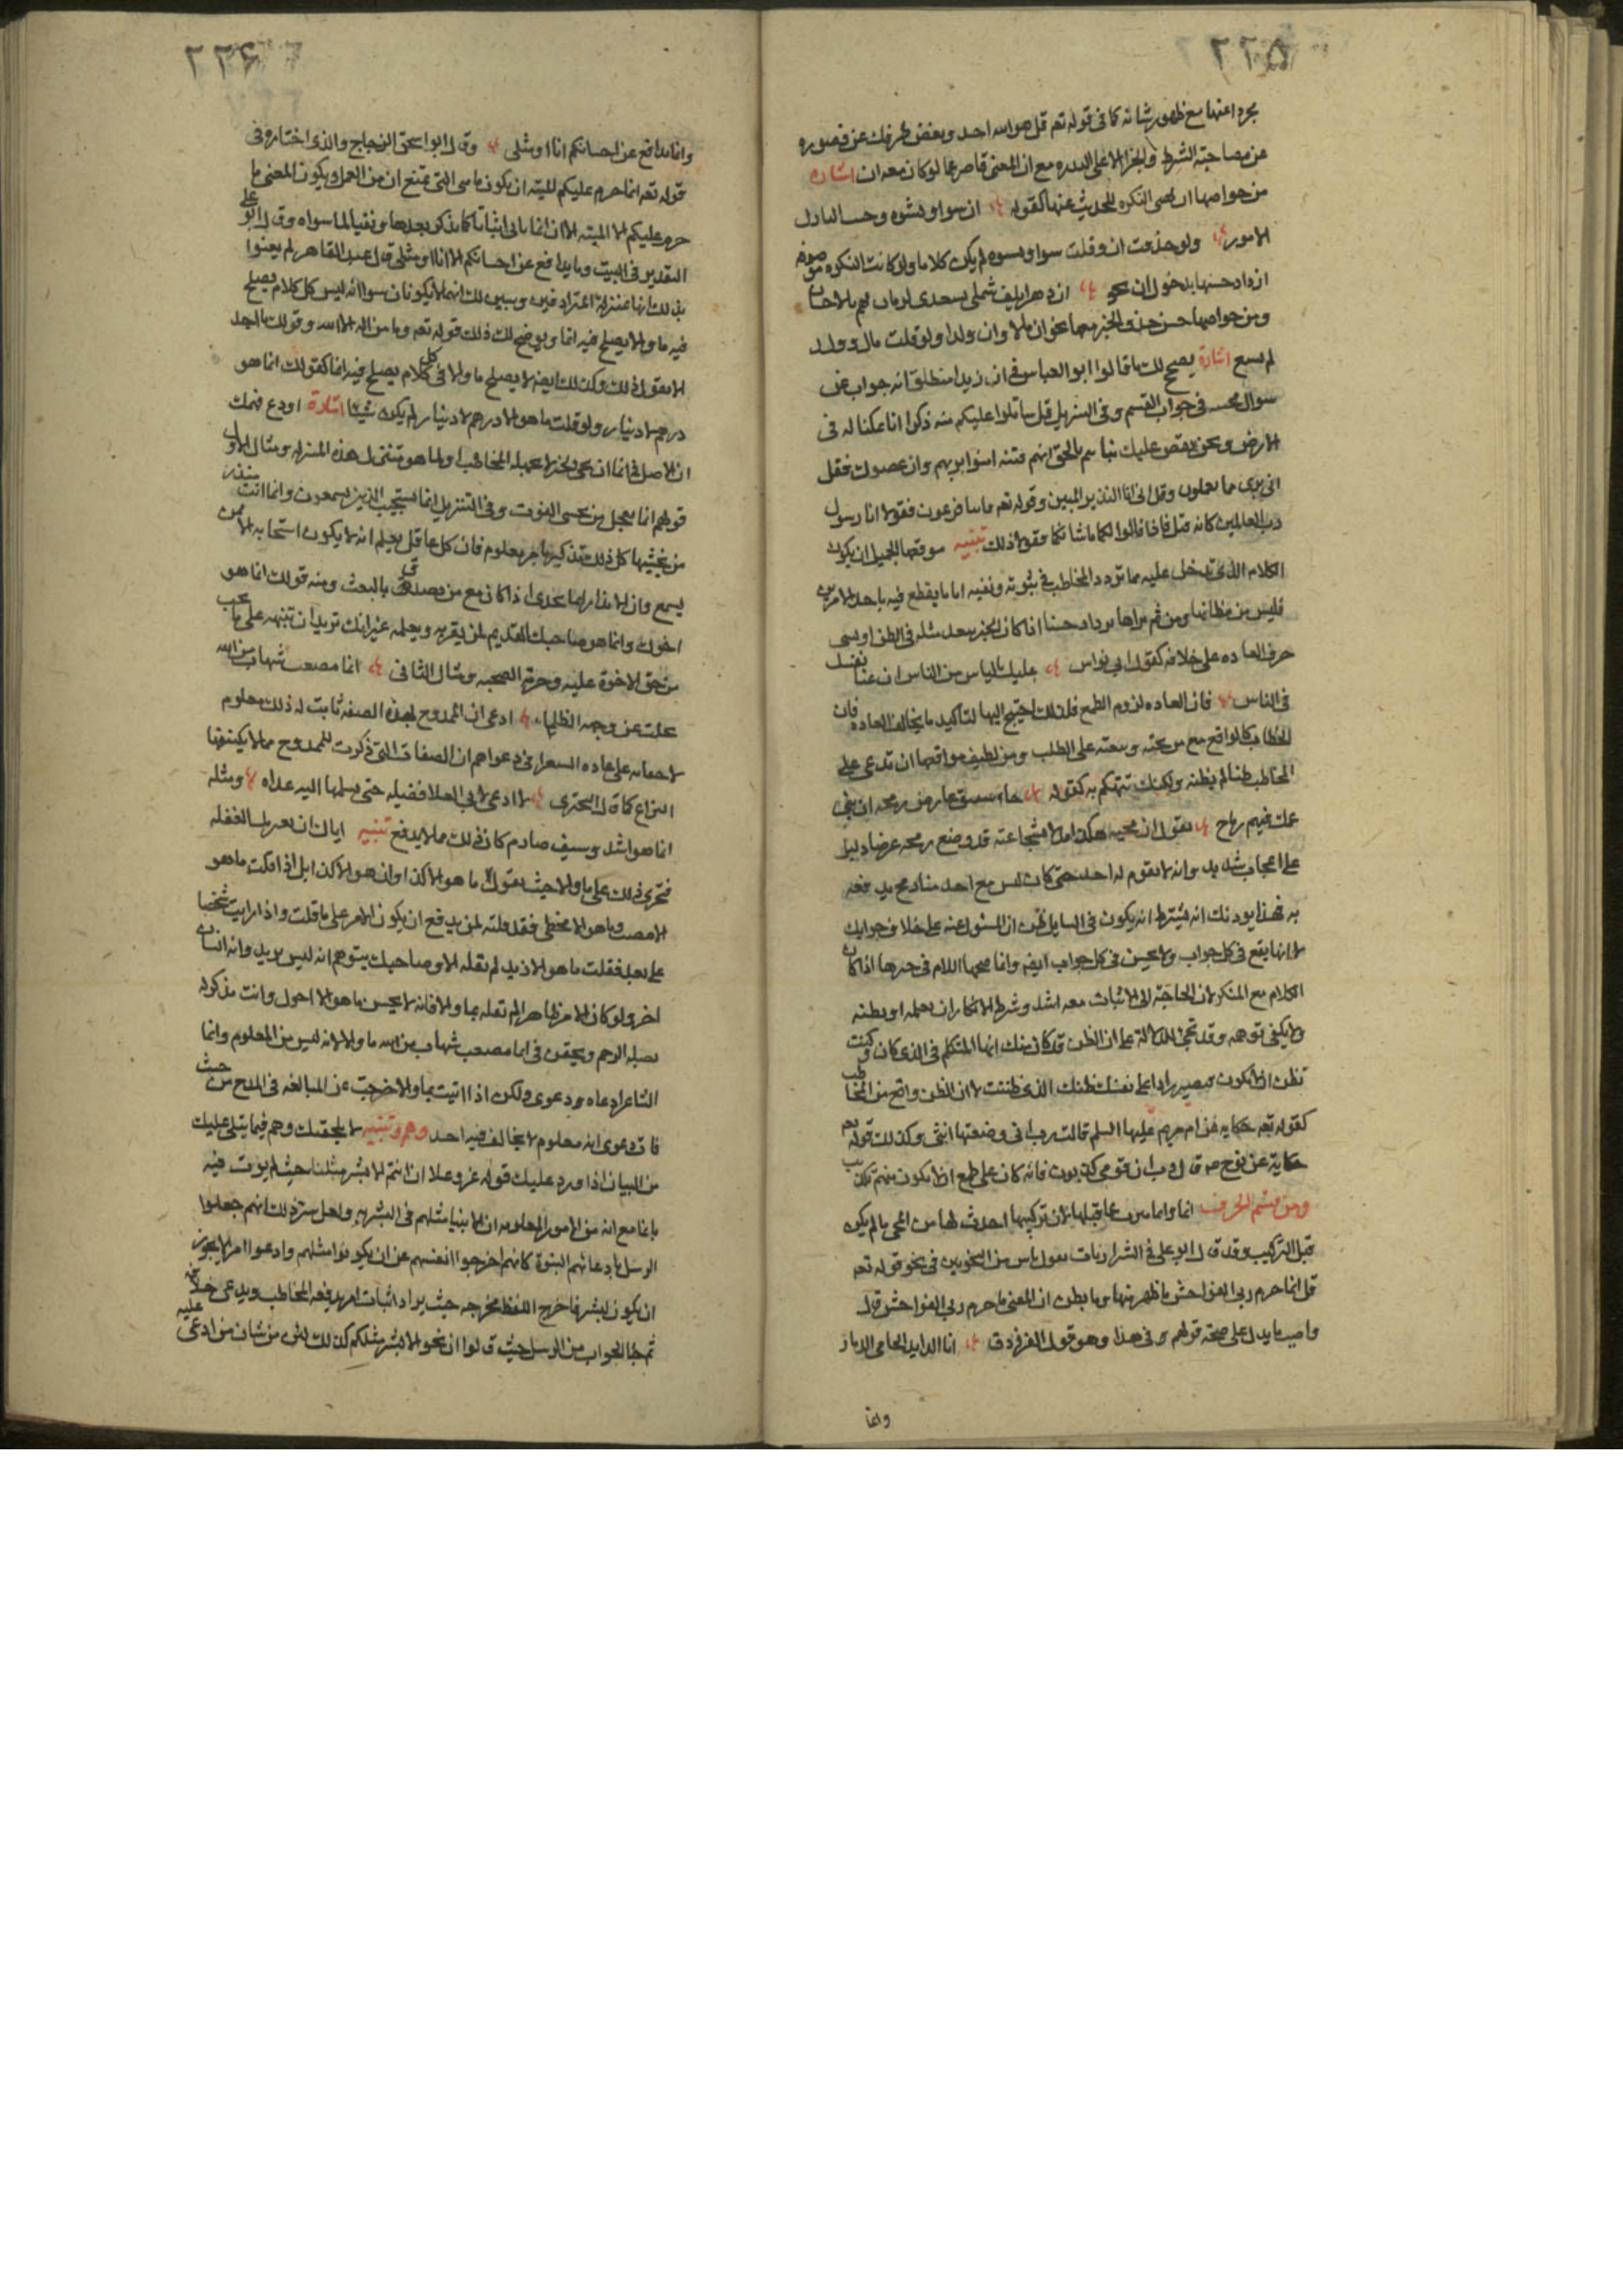 ٢٢٥
بحرد اعنها مع ظهور شانه كما فى قوله تعه قل هو الله احد وبعض طرفك عن قصوره
عن مصاحبة الشرط والجزا الا على الندره مع ان المعنى قاصر عما لو كان معه ان اشاره
من خواصها ان تهيى النكره للحديث عنها كقوله ان سوا ونشوه وحسـ البازل
الامور ولو حذفت ان وقلت سوا ونسوه لم يكن كلاما ولو كانت النكره موصوفه
ازداد حسنها بدخول ان نحو ان دهرا يلف شملى بسعدى لزمان يهم بالاحسان
ومن خواصها حسن حذف الخبر معها نحو ان مالا وان ولدا ولو قلت مال وولد
لم يسع اشارة يصحح لك ما قالوا ابو العباس فى ان زيدا منطلق انه جواب عن
سوال محسه فى جواب القسم وفى التنزيل قل ساتلوا عليكم منه ذكرا انا مكنا له فى
الارض ونحن نقص عليك نباهم بالحق انهم فتية امنوا بربهم وان عصوك فقل
انى برى مما تعملون وقل انى انا النذير المبين وقوله تعه فاتيا فرعون فقولا انا رسول
رب العالمين كانه قيل فاذا قالوا لكما ما شانكما فقولا ذلك تنبيه موقعها الجميل ان يكون
الكلام الذى تدخل عليه مما تردد المخاطب فى ثبوته ونفيه اما ما يقطع فيه باحد الامرين
فليس من مظانها ومن ثم تراها تزداد حسنا اذا كان الخبر يبعد مثله فى الظن او يسى
حرف العاده على خلافه كقول ابى نواس عليك بالياس من الناس ان غنا نفسك
فى الناس فان العاده لزوم الطمع فلذلك احتيج اليها لتاكيد ما يخالف العاده فان
الخطاب كالواقع مع من بحثه وبعثه على الطلب ومن لطيف مواقعها ان تدعى على
المخاطب ظنا لم يظنه ولكنك تتهكم به كقوله جاء شقيق عارض رمحه ان بنى
عمك فيهم رماح يقول ان مجيه هكذا مدلا بشجاعته قد وضع رمحه عرضا دليل
على اعجاب شديد وانه لا يقوم له احد حتى كان ليس مع احد منا رمح يدفعه
به فهذا يوذنك انه يشترط انه يكون فى السايل ظن ان المسئول عنه على خلاف جوابك
لا انها يقع فى كل جواب ولا يحسن فى كل جواب ايضه وانما صحبها اللام فى خبرها اذا كان
الكلام مع المنكر لان الحاجة الى الاثبات معه اشد وشرط الانكار ان يعلمه او يظنه
ولا يكفى توهمه وقد تجى للدلالة على ان الظن قد كان منك ايها المتكلم فى الذى كان وكنت
تظن انه لا يكون فتصير رادا على نفسك ظنك الذى ظننت لا ان الظن واقع من المخاطب
كقوله تعه حكايه عن ام مريم عليها السلم قالت رب انى وضعتها انثى وكذلك قوله تعه
حكاية عن نوح عه قال رب ان قومى كذبون فانه كان على طمع ان لا يكون منهم تكذيب
ومن قسم الحرف انما وانما عما قبلها لان تركيبها احدث لها من المعنى ما لم يكن
قبل التركيب وقد قال ابو على فى الشيرازيات يقول ناس من النحويين فى نحو قوله تعه
قل انما حرم ربى الفواحش ما ظهر منها وما بطن ان المعنى ما حرم ربى الفواحش قال
واصبت ما يدل على صحة قولهم فى هذا وهو قول الفرزدق انا الذايد الحامى الذمار
وانما
٢٢٦
وانما يدافع عن احسابكم انا او مثلى وقال ابو اسحق الزجاج والذى اختاره فى
قوله تعه انما حرم عليكم الميتة ان يكون ما هى التى تمنع ان من العمل ويكون المعنى ما
حرم عليكم الا الميته لان انما تاتى اثباتا لما يذكر بعدها ونفيا لما سواه وقال ابو على
التقدير فى البيت وما يدافع عن احسابكم الا انا او مثلى قال عبد القاهر لم يعنوا
بذلك انها بمنزلة المترادفين ويبين لك انهما لا يكونان سوا انه ليس كل كلام يصلح
فيه ما والا يصلح فيه انما ويوضح لك ذلك قوله تعه وما من اله الا الله وقولك ما احد
الا يقول ذلك وكذلك ايضه لا يصلح ما والا فى كل كلام يصلح فيه انما كقولك انما هو
درهم لا دينار ولو قلت ما هو الا درهم لا دينار لم يكن شيئا اشارة اودع فهمك
ان الاصل فى انما ان تجى لخبر لا يجهله المخاطب او لما هو متنزل هذه المنزله ومثال الاول
قولهم انما يعجل من يخشى الفوت وفى التنزيل انما يستجيب الذين يسمعون وانما انت منذر
من يخشيها كل ذلك تذكير بامر معلوم فان كل عاقل يعلم انه لا يكون استجابه الا ممن
يسمع وان الانذار انما يجدى اذا كان مع من يصدق بالبعث ومنه قولك انما هو
اخوك وانما هو صاحبك القديم لمن يقر به ويعلمه غير انك تريد ان تنبهه على ما يجب
من حق الاخوة عليه وحرمة الصحبه ومثال الثانى انما مصعب شهاب من الله
تجلت عن وجهه الظلماء ادعى ان الممدوح بهذه الصفه ثابت له ذلك معلوم
لا خفا به على عاده الشعرا فى دعواهم ان الصفات التى ذكرت للممدوح مما لا يكتنفها
النزاع كما قال البحترى لا ادعى لابى العلا فضيله حتى يسلمها اليه عداه ومثله
انما هو اشد وسيف صارم كان ذلك مما لا يدفع تنبيه اياك ان الغفله
فتجرى ذلك على ما والا حيث يقول ما هو الا كذا وان هو الا كذا بل اذا قلت ما هو
الا مصيب وما هو الا مخطى فقد قلته لمن يدفع ان يكون الامر على ما قلت واذا رايت شخصا
على بعد فقلت ما هو الا زيد لم تقله الا وصاحبك يتوهم انه ليس بزيد وانه انسان
اخر ولو كان الامر ظاهرا لم تقله بما والا فانه لا يحسن ما هو الا اخوك وانت مذكره
بصله الرحم ويحق فى انما مصعب شهاب من الله ما والا لانه ليس من المعلوم وانما
الشاعر ادعاه ودعوى ولكن اذا اتيت بما والا خرجت عن المبالغه فى المدح من حيث
فات دعوى انه معلوم لا يخالف فيه احد وهم وتنبيه لا يلحقنك وهم فيما يتلى عليك
من البيان اذا ورد عليك قوله عز وعلا ان انتم الا بشر مثلنا حيث لم يوت فيه
بانما مع انه من الامور المعلومه ان الانبيا مثلهم فى البشريه ولعل سر ذلك انهم جعلوا
الرسل بادعائهم النبوة كانهم اخرجوا انفسهم عن ان يكونوا مثلهم وادعوا امرا لا يجوز
ان يكون لبشر فاخرج اللفظ مخرجه حيث يراد اثبات امر يدفعه المخاطب ويدعى خلافه
ثم جا الجواب من الرسل حيث قالوا ان نحن الا بشر مثلكم كذلك لان من شان من ادعى عليه